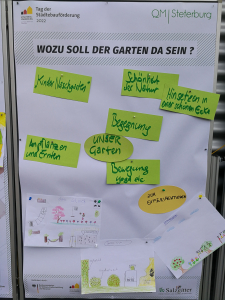 Tag der
Städtebauförderung
2022
QM | Steterburg
WOZU SOLL DER GARTEN DA SEIN ?
Kinder Naschgarten
Schönheit
der Natur
Hinsetzen in
einer schönen Ecke
Begegnung
Anpflanzen
und Ernten
UNSER
Garten
Bewegung
Yoga etc.
ZUR
Salzgitter